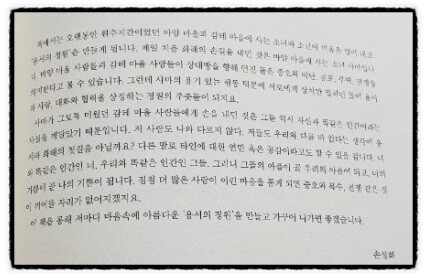 책에서는 오랫동안 원수지간이었던 바양 마을과 감테 마을에 사는 소녀와 소년이 미움을 털어 내고
'용서의 정원'을 만들게 됩니다. 제일 처음 화해의 손길을 내민 것은 바양 마을에 사는 소녀 시마입니
다. 바양 마을 사람들과 감테 마을 사람들이 상대방을 향해 던진 돌은 증오와 비난, 공포, 무력, 전쟁을
의미한다고 볼 수 있습니다. 그런데 시마의 용기 있는 행동 덕분에 서로에게 상처만 입히던 돌이 용서
와 사랑, 대화와 협력을 상징하는 정원의 주춧돌이 되지요.
시마가 그토록 미워했던 감테 마을 사람들에게 손을 내민 것은 그들 역시 자신과 똑같은 인간이라는
사실을 깨달았기 때문입니다. 저 사람도 나와 다르지 않다. 저들도 우리와 다를 바 없다는 생각이 용
서와 화해의 첫걸음 아닐까요? 다른 말로 타인에 대한 연민 혹은 공감이라고도 할 수 있을 겁니다. 나
와 똑같은 인간인 너, 우리와 똑같은 인간인 그들. 그러니 그들의 아픔이 곧 우리의 아픔이 되고, 너의
기쁨이 곧 나의 기쁨이 됩니다. 점점 더 많은 사람이 이런 마음을 품게 되면 증오와 복수, 전쟁 같은 것
이 끼어들 자리가 없어지겠지요.
이 책을 통해 저마다 마음속에 아름다운 '용서의 정원'을 만들고 가꾸어 나가면 좋겠습니다.
손성화